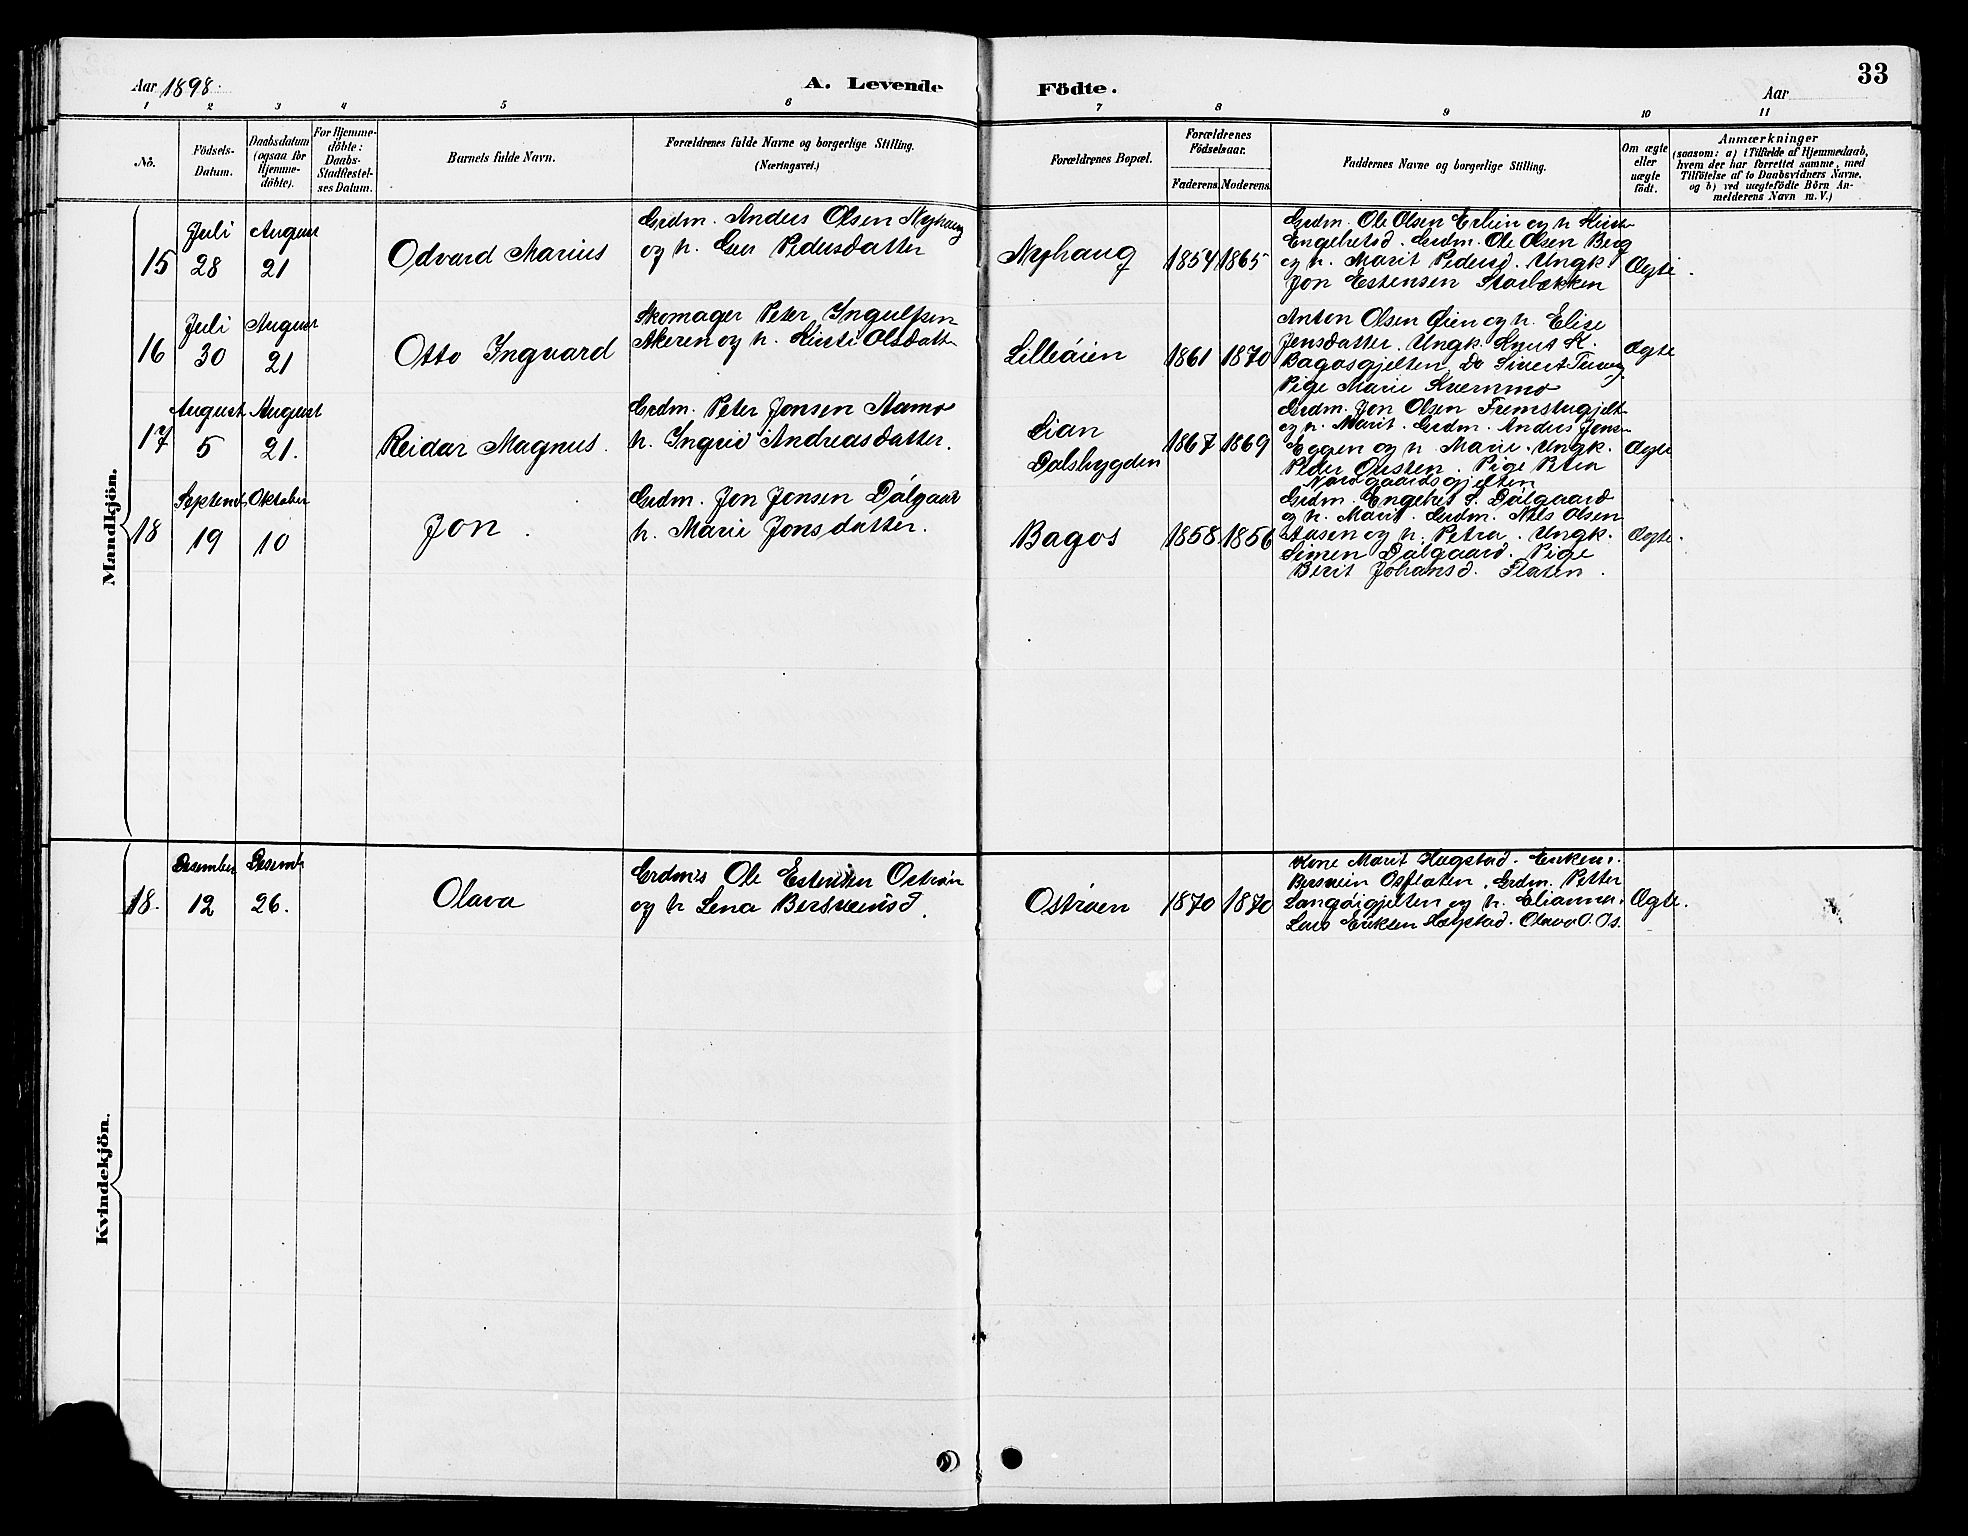 Aar 1898.
A. Levende Födte.
33
Aar
1 2 3 4 5 6 7 8 9 10 11
No.
Födsels-Datum.
Daabsdatum (ogsaa for Hjemme-döbte).
For Hjemme-döbte: Daabs-Stadfæstel-ses Datum.
Barnets fulde Navn.
Forældrenes fulde Navne og borgerlige Stilling.
(Næringsvei.)
Forældrenes Bopæl.
Forældrenes Födselsaar.
Faderens. Moderens.
Faddernes Navne og borgerlige Stilling.
Om ægte eller uægte födt.
Anmærkninger
(saasom: a) i Tilfælde af Hjemmedaab,
hvem der har forrettet samme, med
Tilföielse af to Daabsvidners Navne.
og b) ved uægtefödte Börn An-
melderens Navn m. V.)
Mandkjön.
15
Juli 28
August 21
Odvard Marius
Grdm. Anders Olsen Nyhaug
og h. Pedersdatter
Nyhaug
1854 1865
Grdm. Ole Olsen Erlien og h.
Engebretsd. Grdm. Ole Olsen Berg
og h. Marit Pedersd. Ungk.
Jon Estensen Storbækken
Ægte.
16
Juli 30
August 21
Otto Ingvard
Skomager Peter Ingulfsen
Akeren og h. Kirsti Olsdatt
Lilleöien
1861 1870
Anton Olsen Öien og h. Elise
Jensdatter. Ungk. Knut K.
Bagosgjelten Do Sivert
Pige Marie Kvernmo
Ægte
17
August 5
August 21.
Reidar Magnus.
Grdm. Peter Jonsen Aamo
h. Ingrid Andreasdatter.
Lian
Dalsbygden
1867 1869
Grdm. Jon Olsen Fremstugjelt
og h. Marit. Grdm. Anders Jons
Eggen og h. Marie. Ungk.
Peder Pige Petra
Nordgaardsgjelten
Ægte
18
Septemb. 19
Oktober 10
Jon.
Grdm. Jon Jonsen Dölgaar
h. Marie Jonsdatter.
Bagos
1858 1856
Grdm. Engebret S. Dölgaard
og h. Marit. Grdm. Nils Olsen
Aasen og h. Petra. Ungk.
Simen Dölgaard. Pige
Berit Johansd. Flaten.
Ægte.
Kvindekjön.
18.
Desember 12
Desemb 26.
Olava
Grdm's Ole Estensen Oströen
og h Lena Bersveinsd.
Oströen
1870 1870
Kone Marit Hagstad. Enkem.
Bersvein Osflaten. Grdm. Petter
Langöigjelten og h. Elianna.
Lars Eriksen Hagstad. Olava O. Os.
Ægte.